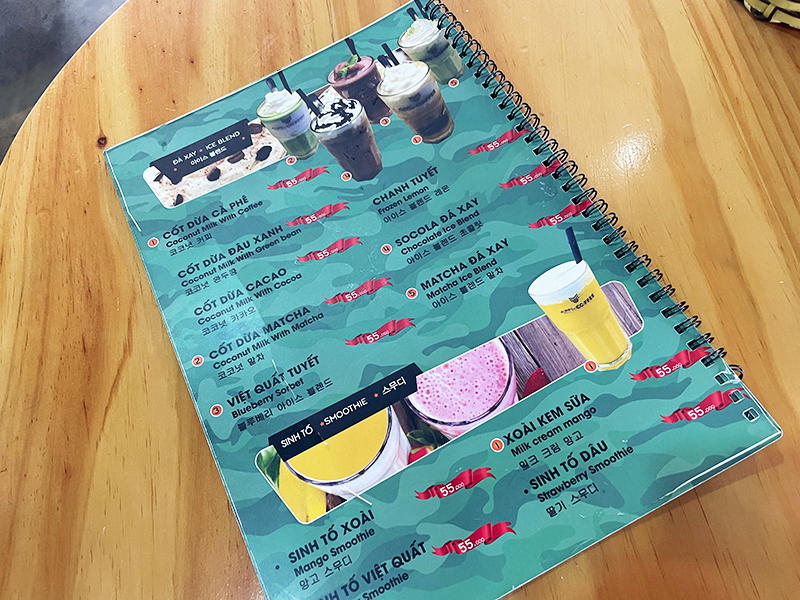 ĐÁ XAY * ICE BLEND
아이스 블렌드
2
4
3
1
5
1 CỐT DỪA CÀ PHÊ 55.000
Coconut Milk With Coffee
코코넛 커피
CỐT DỪA ĐẬU XANH 55.000
Coconut Milk With Green bean
코코넛 완두콩
CỐT DỪA CACAO 55.000
Coconut Milk With Cocoa
코코넛 카카오
2 CỐT DỪA MATCHA 55.000
Coconut Milk With Matcha
코코넛 말차
3 VIỆT QUẤT TUYẾT 55.000
Blueberry Sorbet
블루베리 아이스 블렌드
CHANH TUYẾT 55.000
Frozen Lemon
아이스 블렌드 레몬
4 SOCOLA ĐÁ XAY 55.000
Chocolate Ice Blend
아이스 블렌드 초콜릿
5 MATCHA ĐÁ XAY 55.000
Matcha Ice Blend
아이스 블렌드 말차
SINH TỐ * SMOOTHIE * 스무디
1
SINH TỐ XOÀI 55.000
Mango Smoothie
망고 스무디
NH TỐ VIỆT QUẤT 55.000
Smoothie
1 XOÀI KEM SỮA 55.000
Milk cream mango
밀크 크림 망고
SINH TỐ DÂU 55.000
Strawberry Smoothie
딸기 스무디